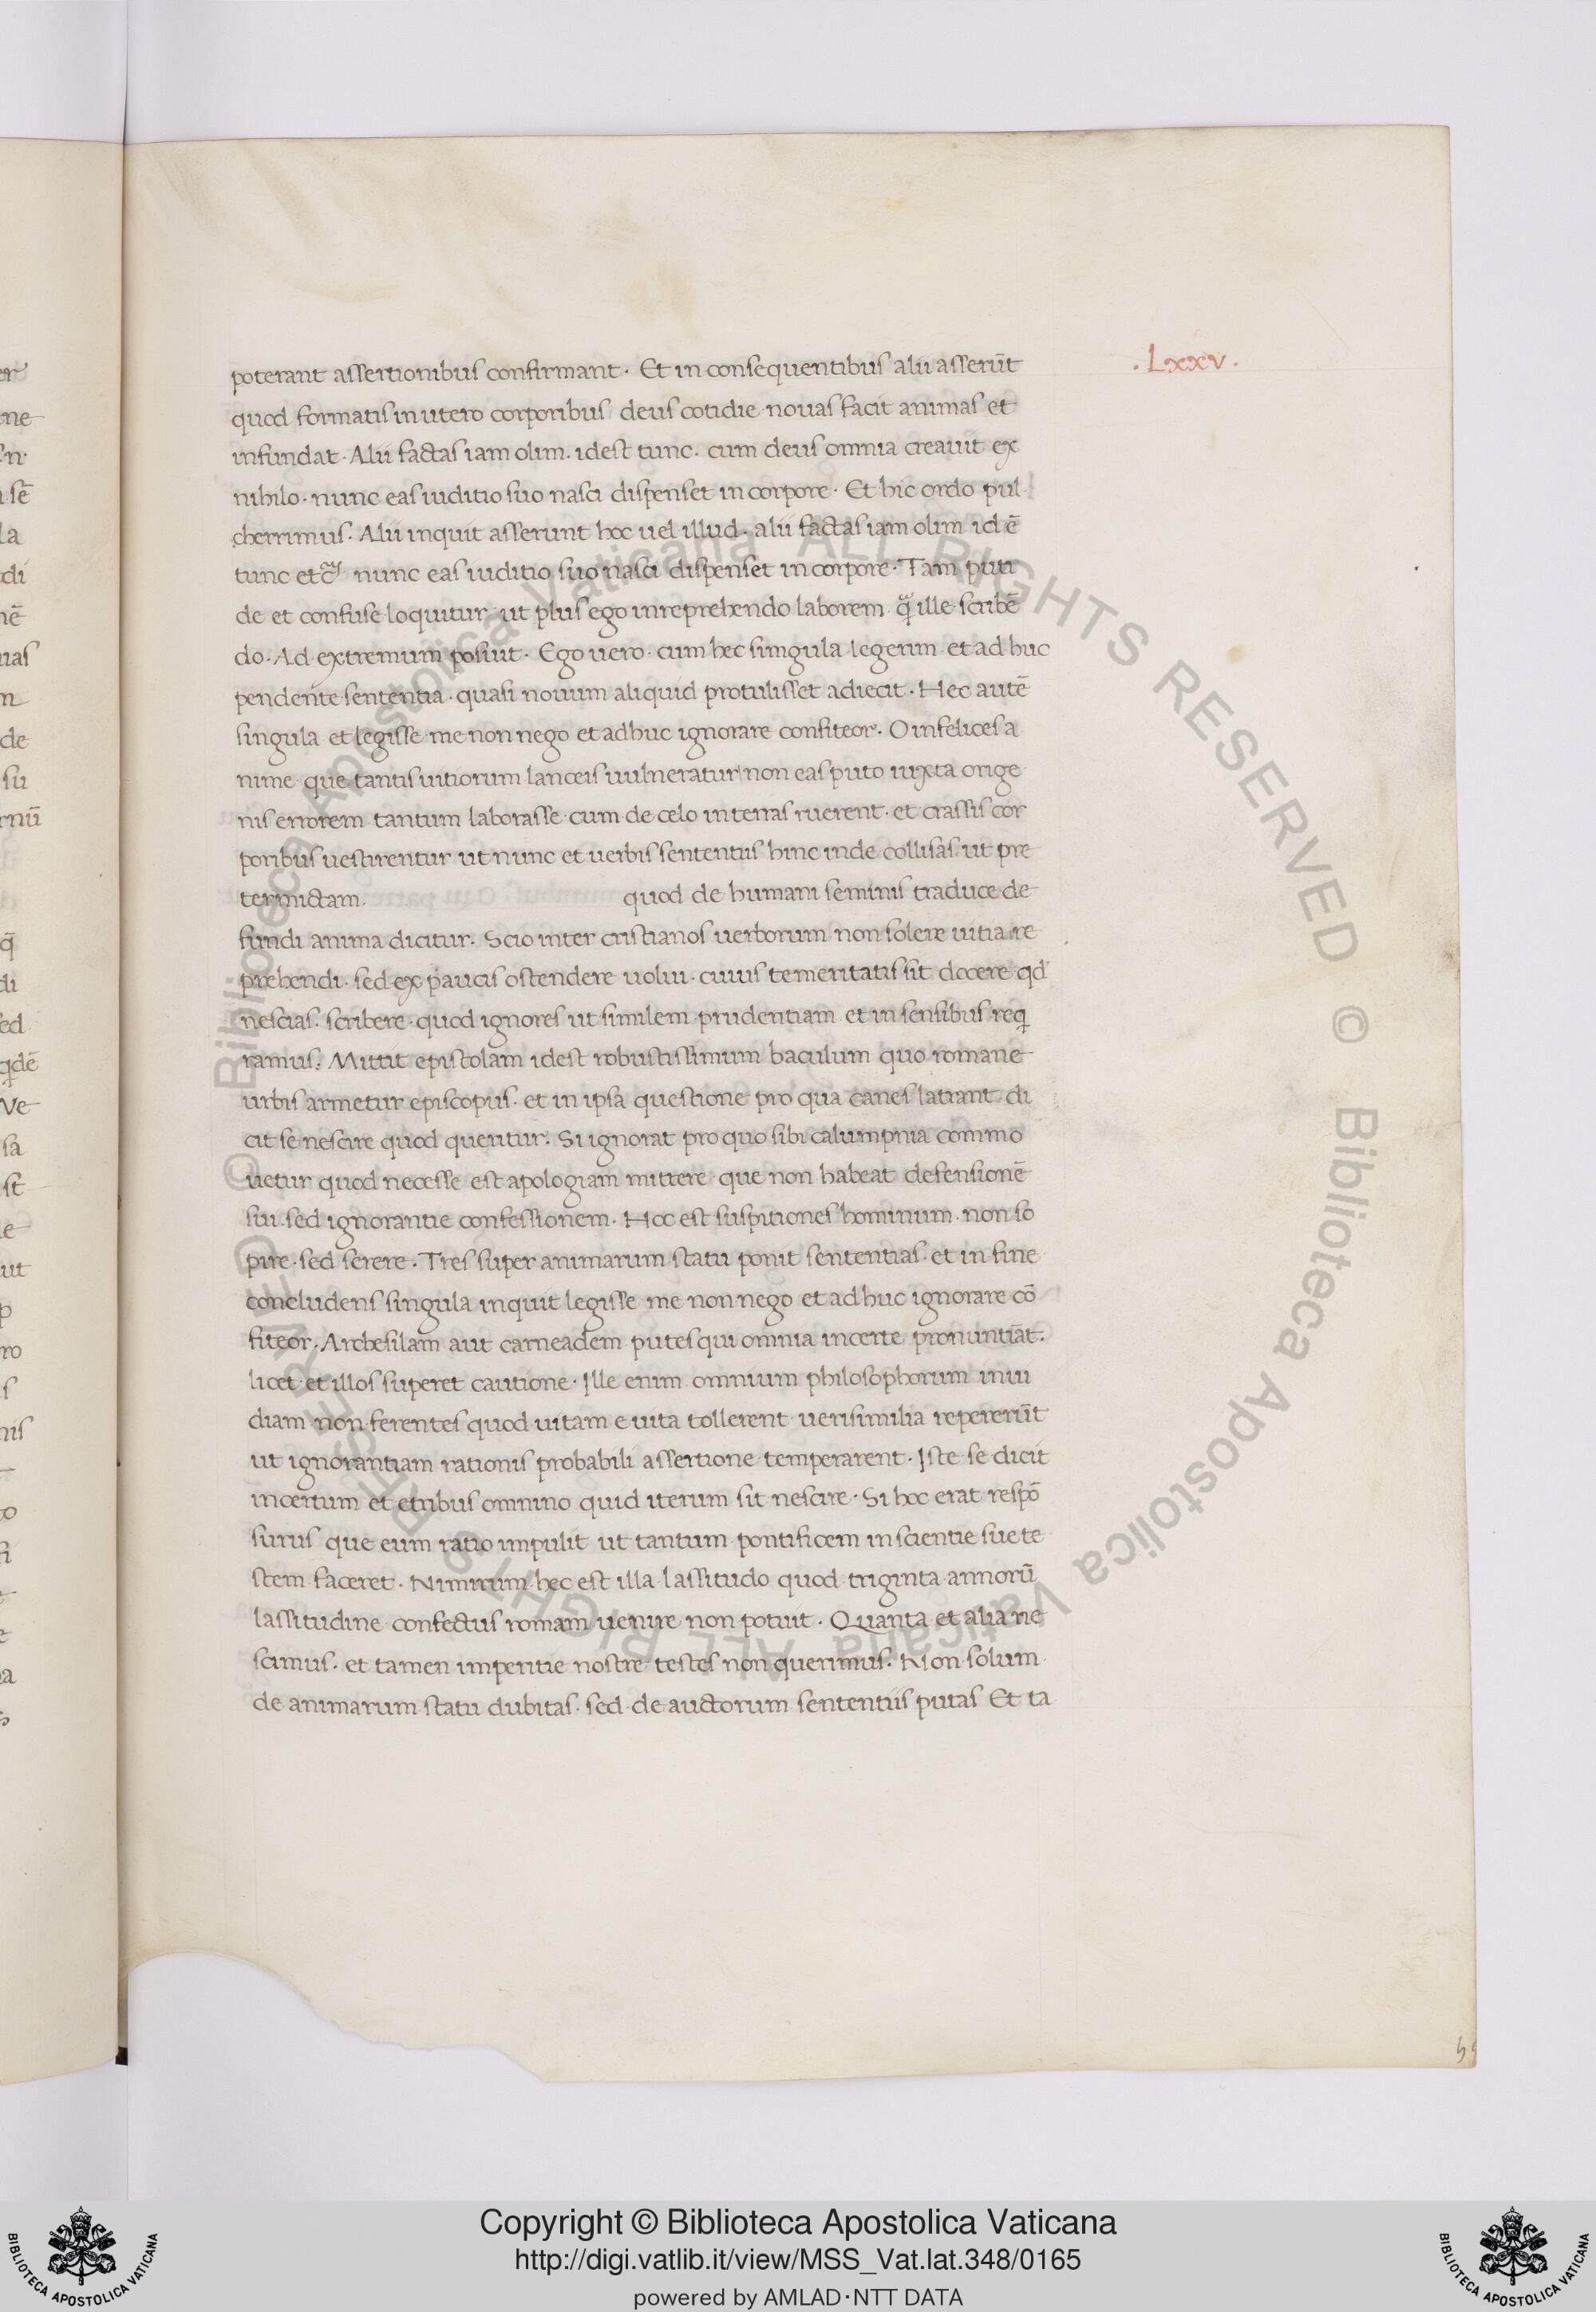 poterant assertionibus confirmant. Et in consequentibus alii asserūt
.Lxxv.
quod formatis in utero corporibus deus cotidie nouas facit animas et
infundat. Alii factas iam olim. idest tunc. cum deus omnia creauit ex
nihilo. nunc eas iuditio suo nasci dispenset in corpore. Et hic ordo pul
cherrimus. Alii inquit asserunt hoc uel illud. alii factas iam olim id ē
tunc etc̃ nunc eas iuditio suo nasci dispenset in corpore. Tam puti
de et confuse loquitur ut plus ego in reprehendo laborem q̃ ille scribē
do. Ad extremum posuit. Ego uero. cum hec singula legerim et ad huc
pendente sententia. quasi nouum aliquid protulisset adiecit. Hec autē
singula et legisse me non nego et adhuc ignorare confiteor. O infelices a
nime que tantis uitiorum lanceis uulneratur non eas puto iuxta orige
nis errorem tantum laborasse cum de celo in terras ruerent. et crassis cor
poribus uestirentur ut nunc et uerbis sententiis hinc inde collisas ut pre
termictam. quod de humani seminis traduce de
fundi anima dicitur. Scio inter cristianos uerborum non solere uitia re
prehendi. sed ex paucis ostendere uolui. cuius temeritatis sit docere qd
nescias. scribere quod ignores ut similem prudentiam et in sensibus req̄
ramus. Mittit epistolam idest robustissimum baculum quo romane
urbis armetur episcopus. et in ipsa questione pro qua canes latrant di
cit se nescire quod queritur. Si ignorat pro quo sibi calumpnia commo
uetur quod necesse est apologiam mittere que non habeat defensionē
sui sed ignorantie confessionem. Hoc est suspitiones hominum non so
pire. sed serere. Tres super animarum statu ponit sententias. et in fine
concludens singula inquit legisse me non nego et ad huc ignorare cō
fiteor. Archesilam aut carneadem putes qui omnia incerte pronuntiāt.
licet et illos superet cautione. Ille enim omnium philosophorum inui
diam non ferentes quod uitam e uita tollerent uerisimilia repererūt
ut ignorantiam rationis probabili assertione temperarent. Iste se dicit
incertum et etribus omnino quid iterum sit nescire. Si hoc erat respō
surus que eum ratio impulit ut tantum pontificem inscientie sue te
stem faceret. Nimirum hec est illa lassitudo quod triginta annorū
lassitudine confectus romam uenire non potuit. Quanta et alia ne
scimus. et tamen imperitie nostre testes non querimus. Non solum
de animarum statu dubitas. sed de auctorum sententiis putas Et ta
Copyright © Biblioteca Apostolica Vaticana
http://digi.vatlib.it/view/MSS_Vat.lat.348/0165
powered by AMLAD·NTT DATA